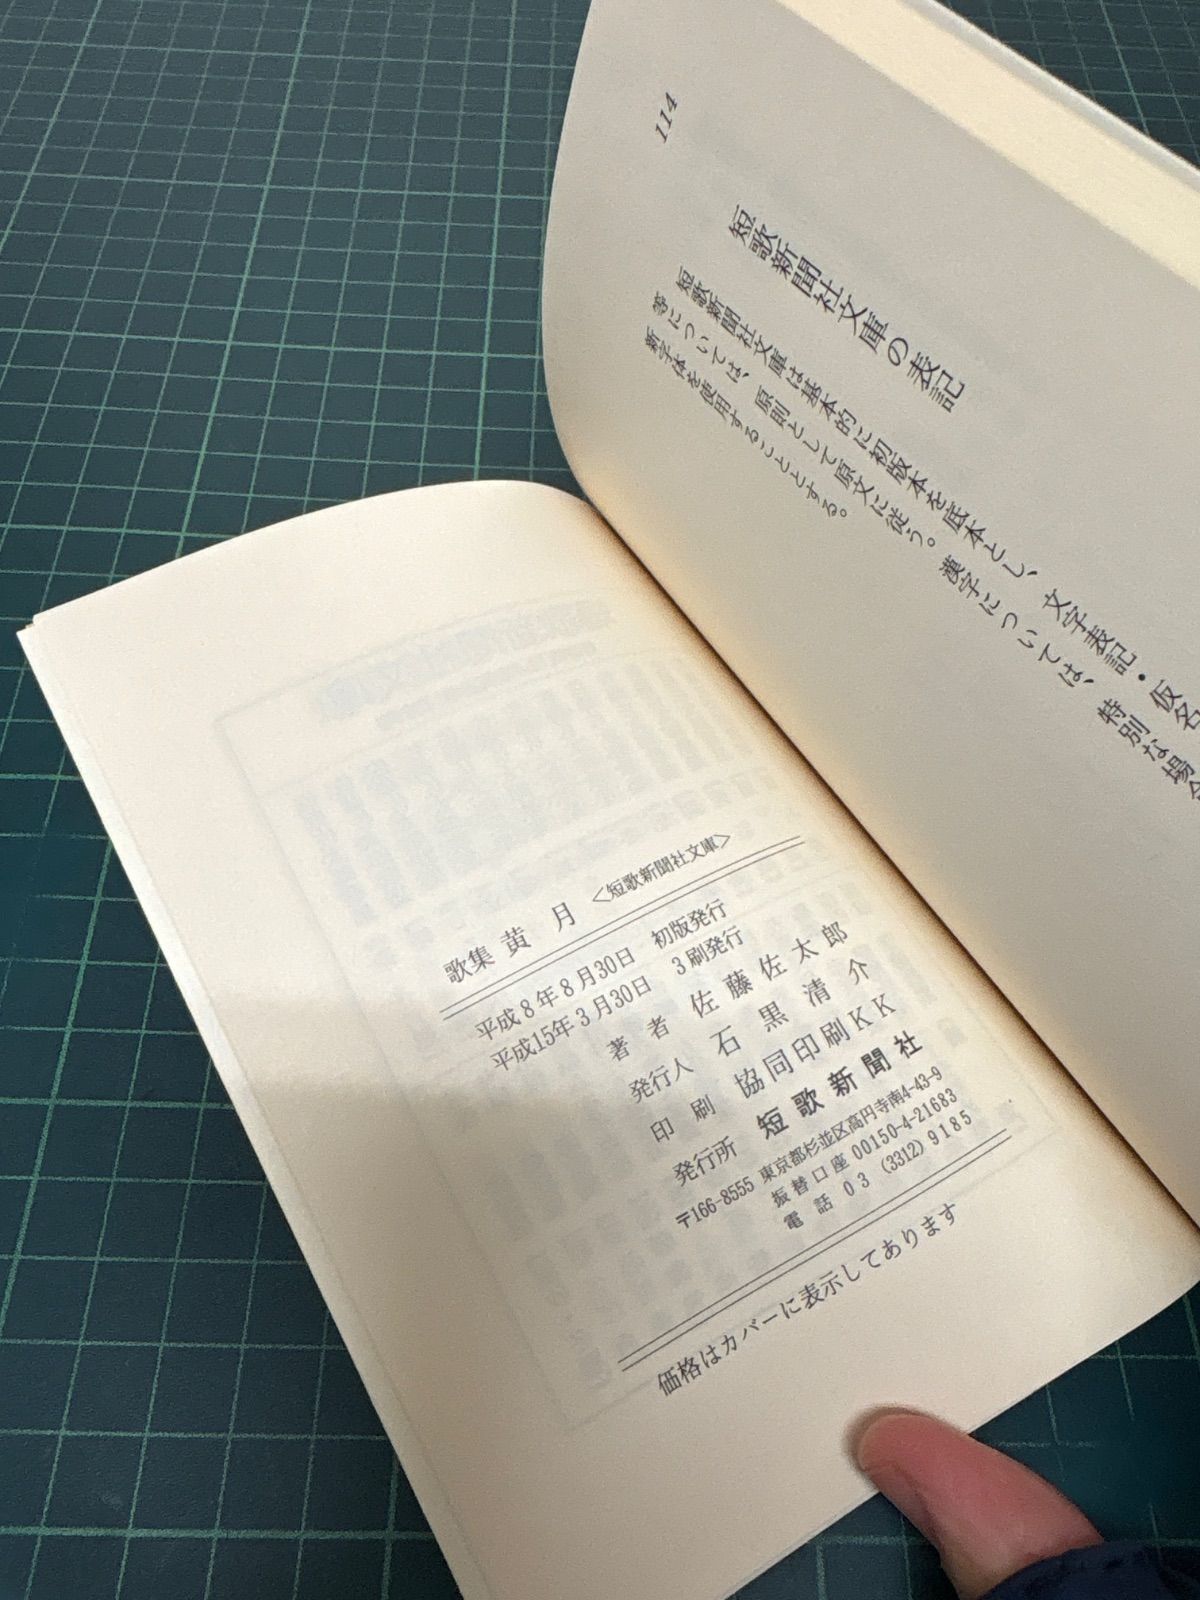 114
短歌新聞社文庫の表記
短歌新聞社文庫は基本的に初版本を底本とし、文字表記・仮名
等については、原則として原文に従う。漢字については、特別な場合
新字体を使用することとする。
歌集 黄 月 〈短歌新聞社文庫〉
平成8年8月30日 初版発行
平成15年3月30日 3刷発行
著者 佐藤佐太郎
発行人 石黒清介
印刷 協同印刷KK
発行所 短歌新聞社
〒166-8555 東京都杉並区高円寺南4-43-9
振替口座 00150-4-21683
電話 03 (3312) 9185
価格はカバーに表示してあります